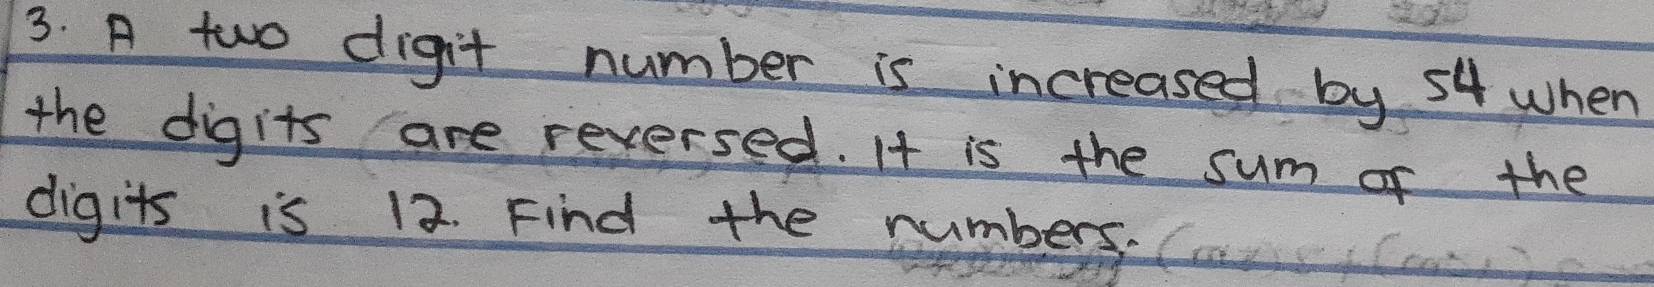 3. A two digit number is increased by 54 when
the digits are reversed. It is the sum of the
digits is 12. Find the numbers.